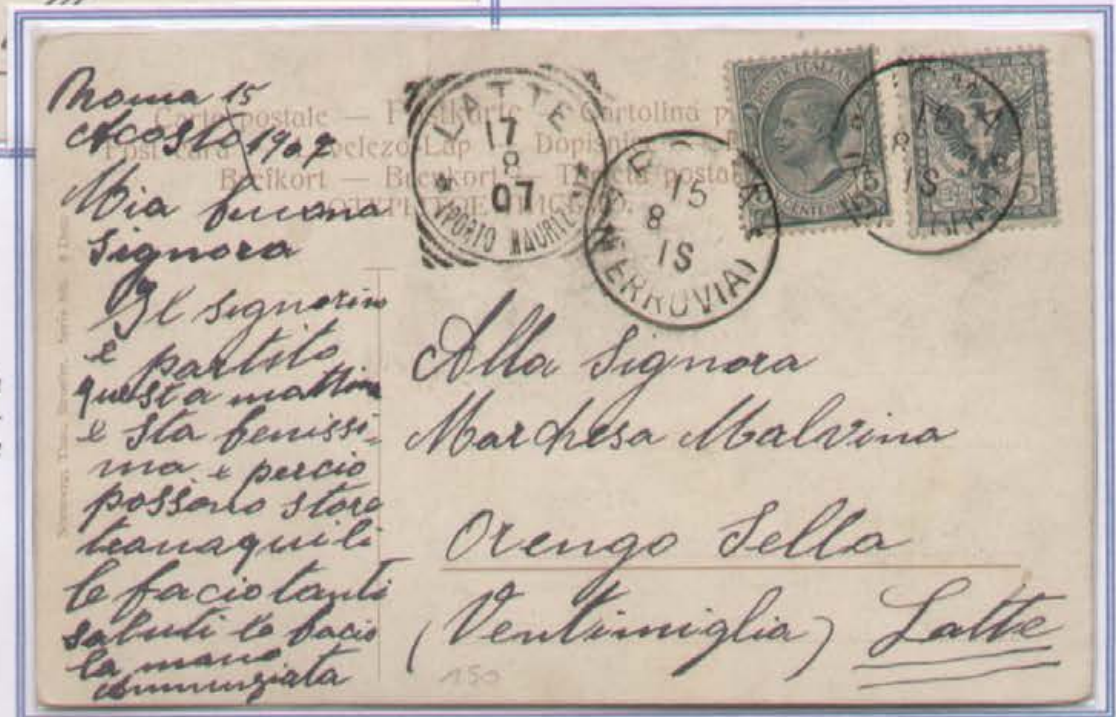 Roma 15
Agosto 1907
Mia buona
Signora
Il signorino
e partito
questa mattina
e sta benissi-
ma e percio
possono stare
tranaquili
le facio tanti
saluti le bacio
la mano
Annunziata
Carte postale — Postkarte — Cartolina
Post card — Levelezö-Lap — Dopisnice
Brefkort — Brevkort — Tarjeta postal
LATTE
17
8
07
(PORTO MAURIZIO)
ROMA
15
8
1S
(FERROVIA)
POSTE ITALIANE
15
8
1S
5
CENTESIMI
5
Alla Signora
Marchesa Malvina
Orengo Sella
(Ventimiglia) Latte
150